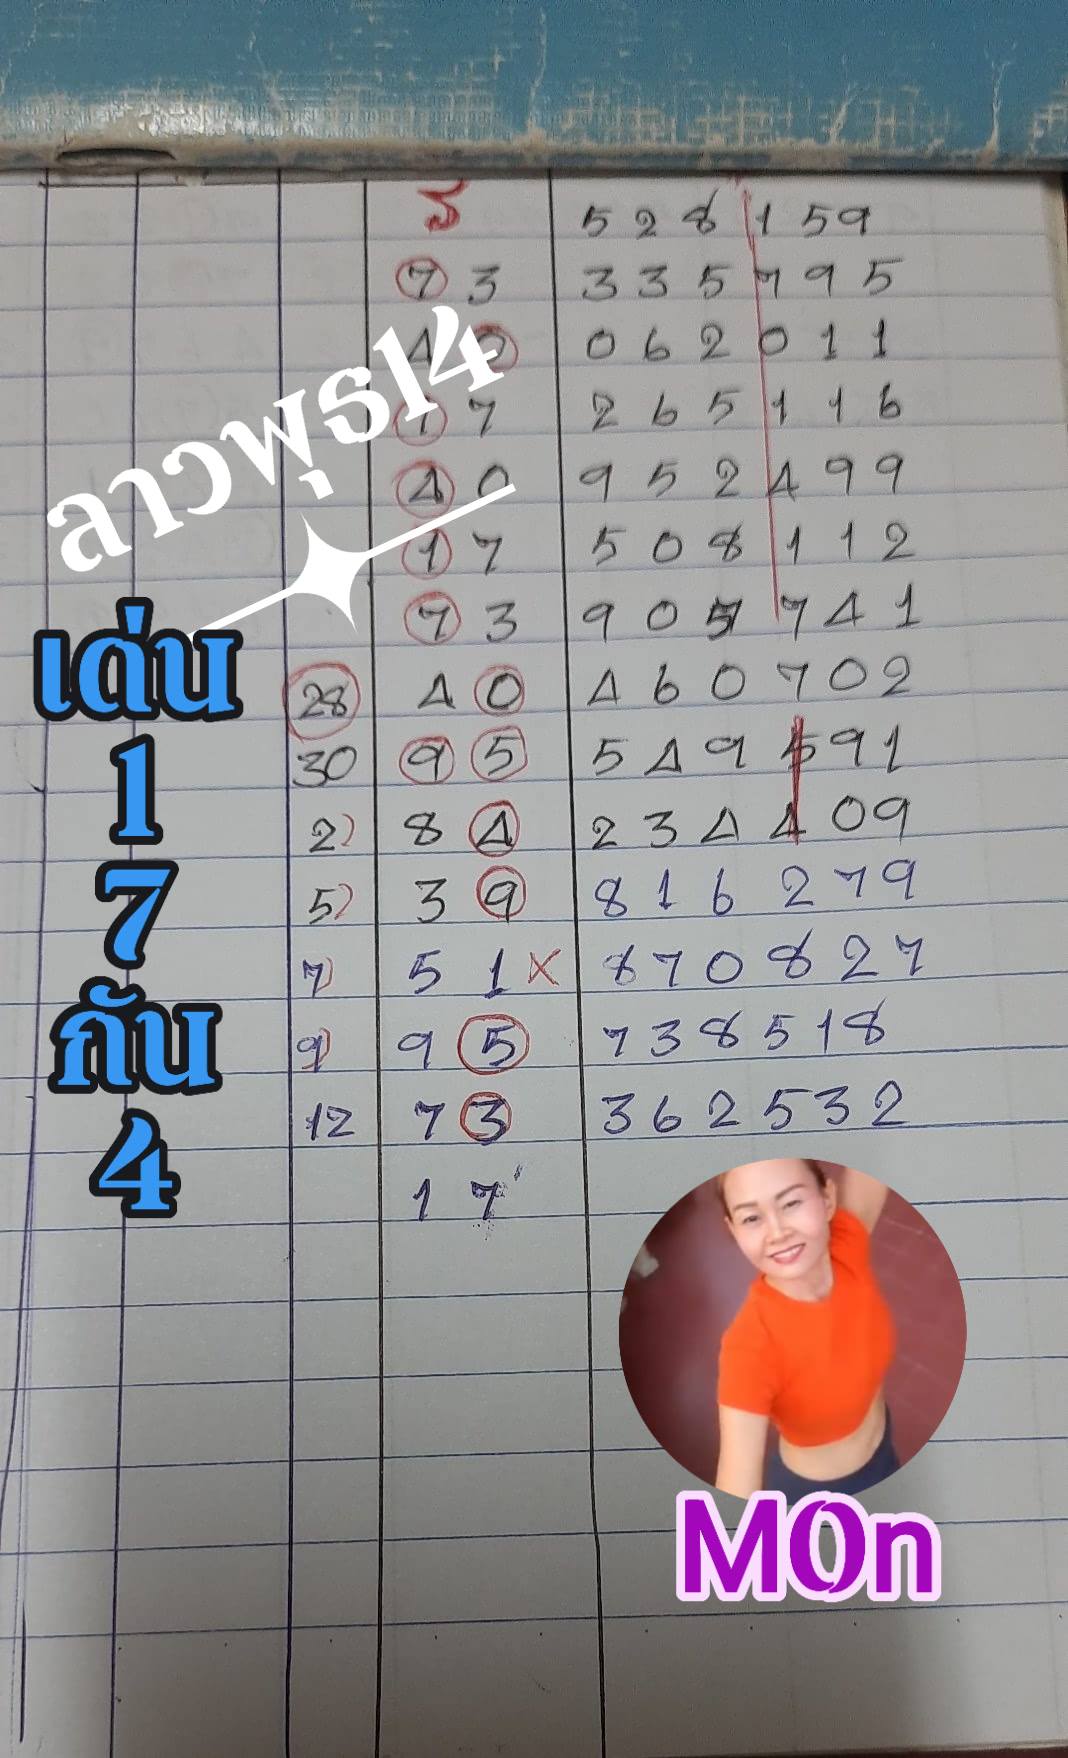 ลาวพุธ14
เด่น
1
7
กัน
4
528 159
73 335 795
40 062 011
17 265 116
40 952 499
17 508 112
73 905 741
28 40 460 702
30 95 549 591
2) 84 234 409
5) 39 816 279
7) 51 X 870 827
9) 95 738 518
12 73 362 532
17
MOn